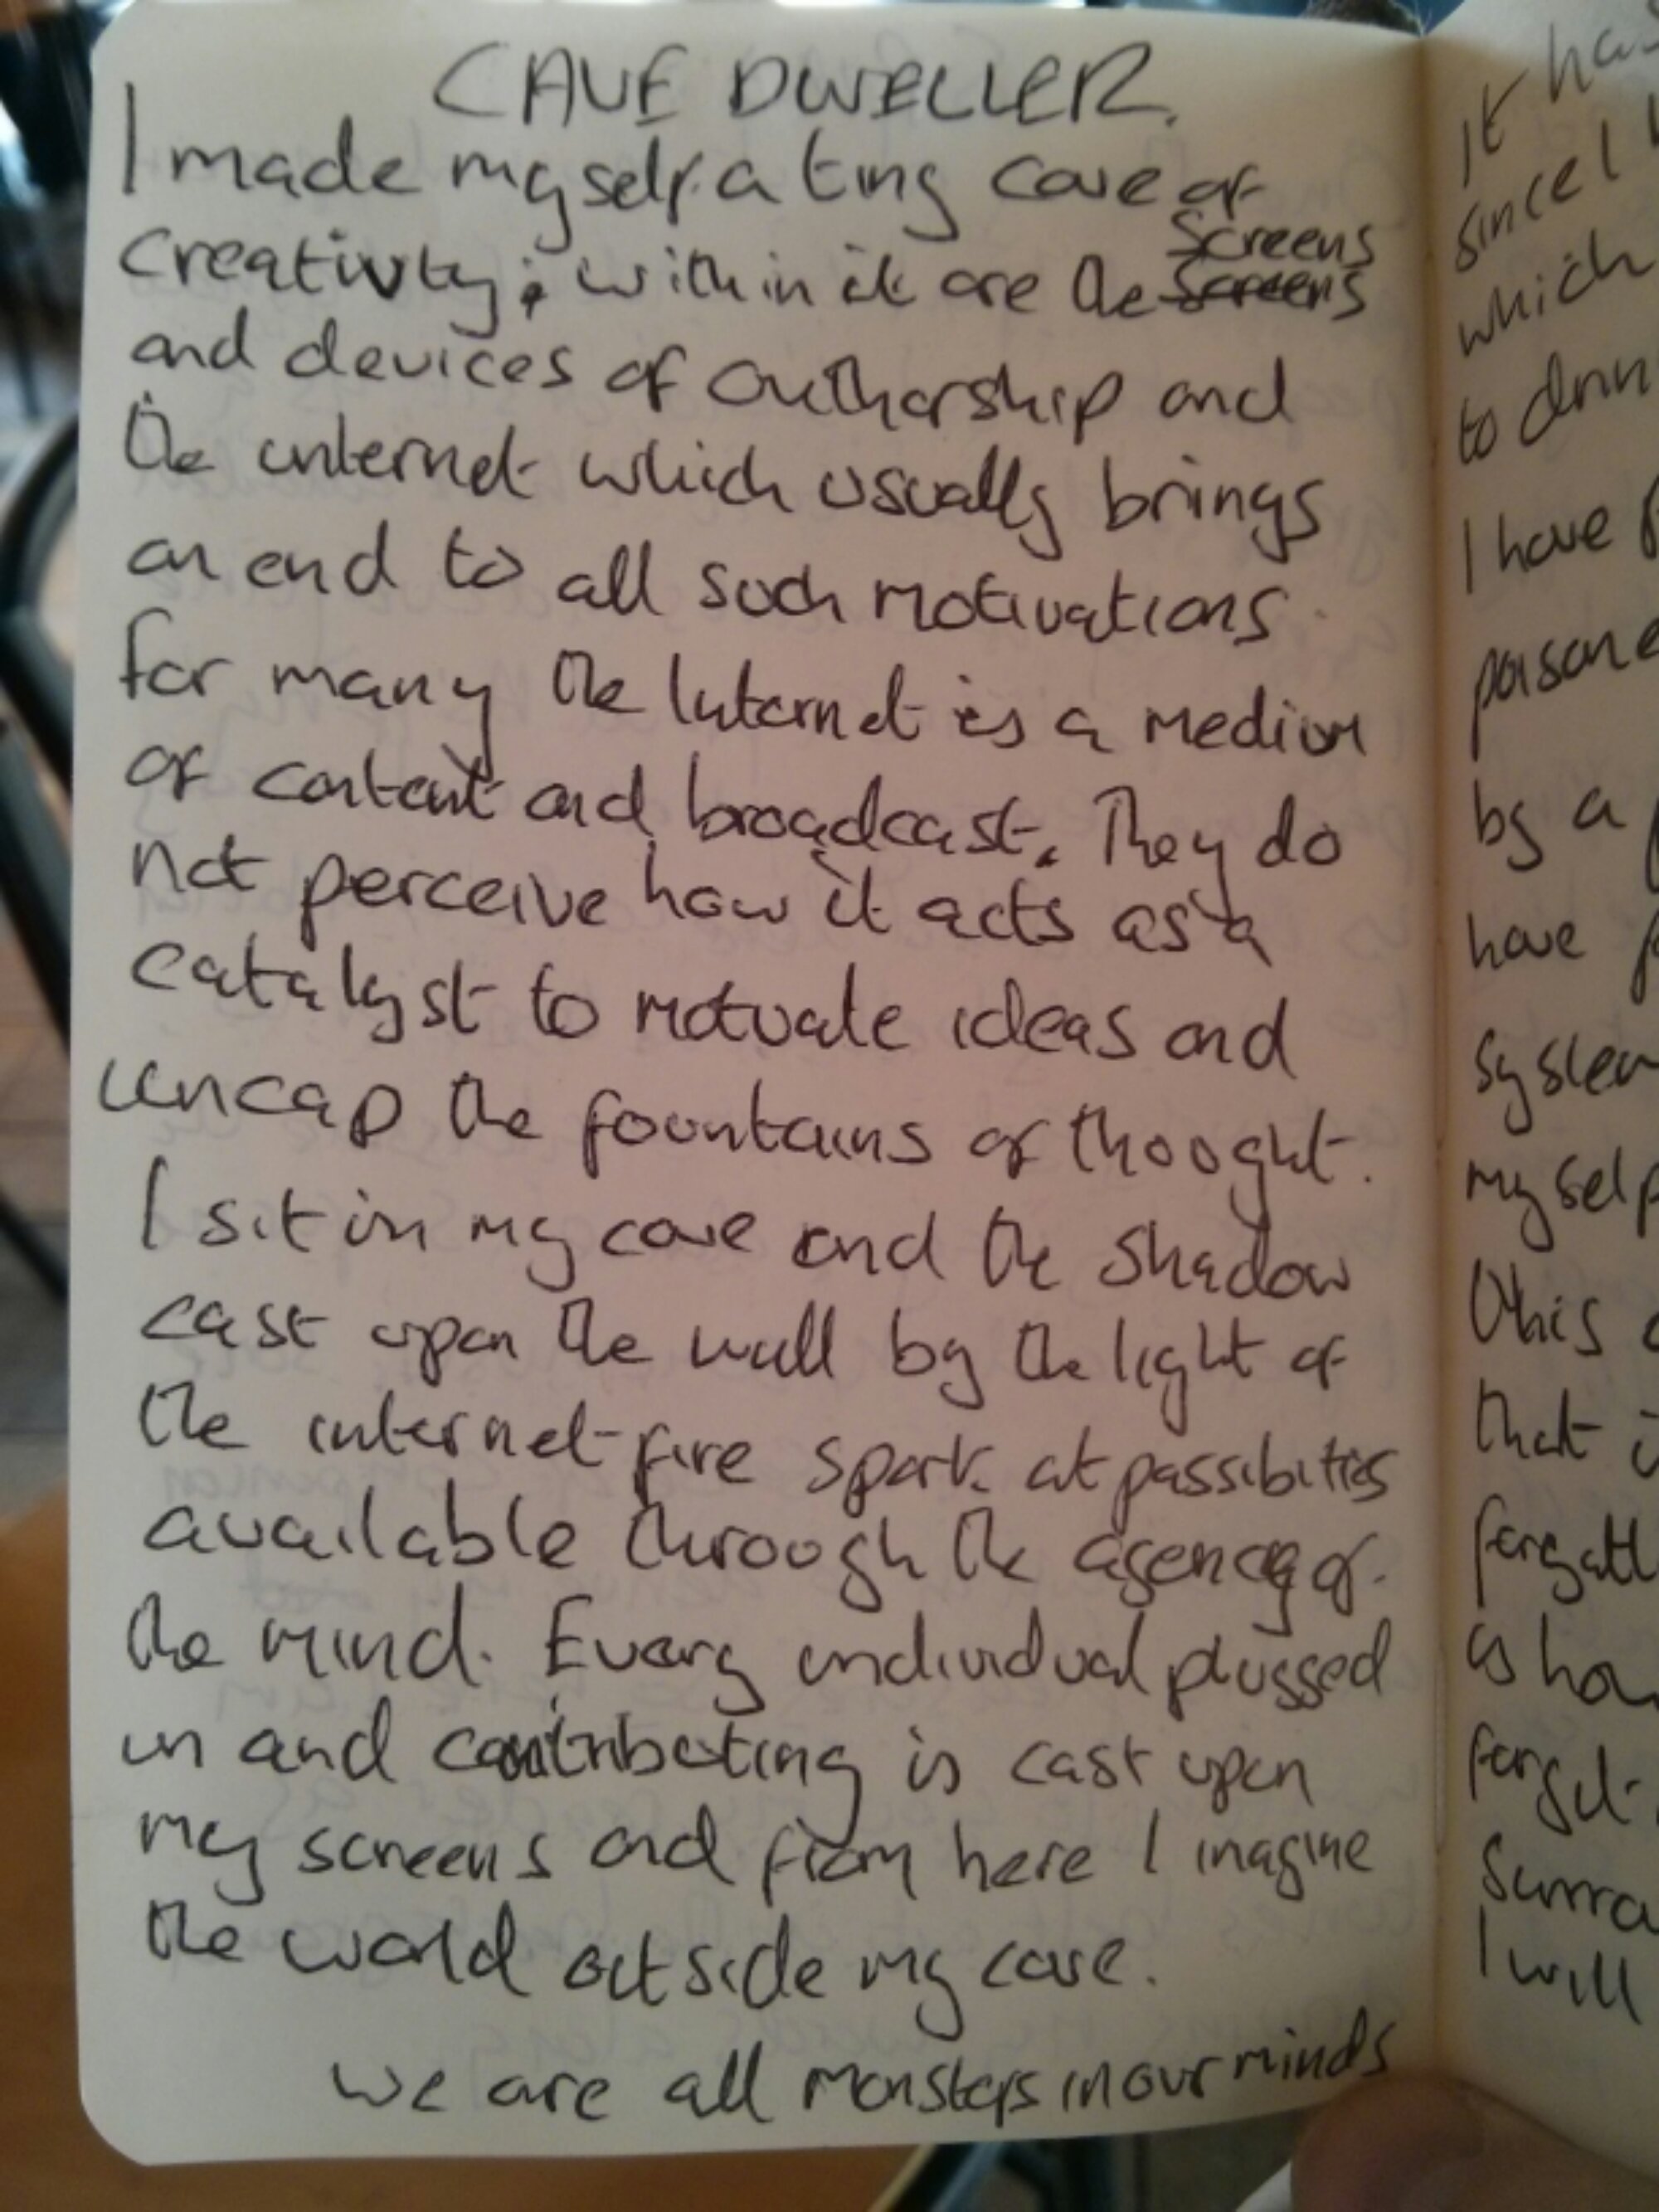 CAVE DWELLER.
I made myself a tiny cave of
creativity; within it are the Screens
Screens
and devices of authorship and
the internet which usually brings
an end to all such motivations.
For many the Internet is a medium
of content and broadcast. They do
not perceive how it acts as a
catalyst to motivate ideas and
uncap the fountains of thought.
I sit in my cave and the shadow
cast upon the wall by the light of
the internet fire spark at possibities
available through the agency of
the mind. Every individual plugged
in and contributing is cast upon
my screens and from here I imagine
the world outside my cave.
we are all monsters in our minds
It
since I
which
to
I have
by a
have
myself
this
that
is
forget
I will